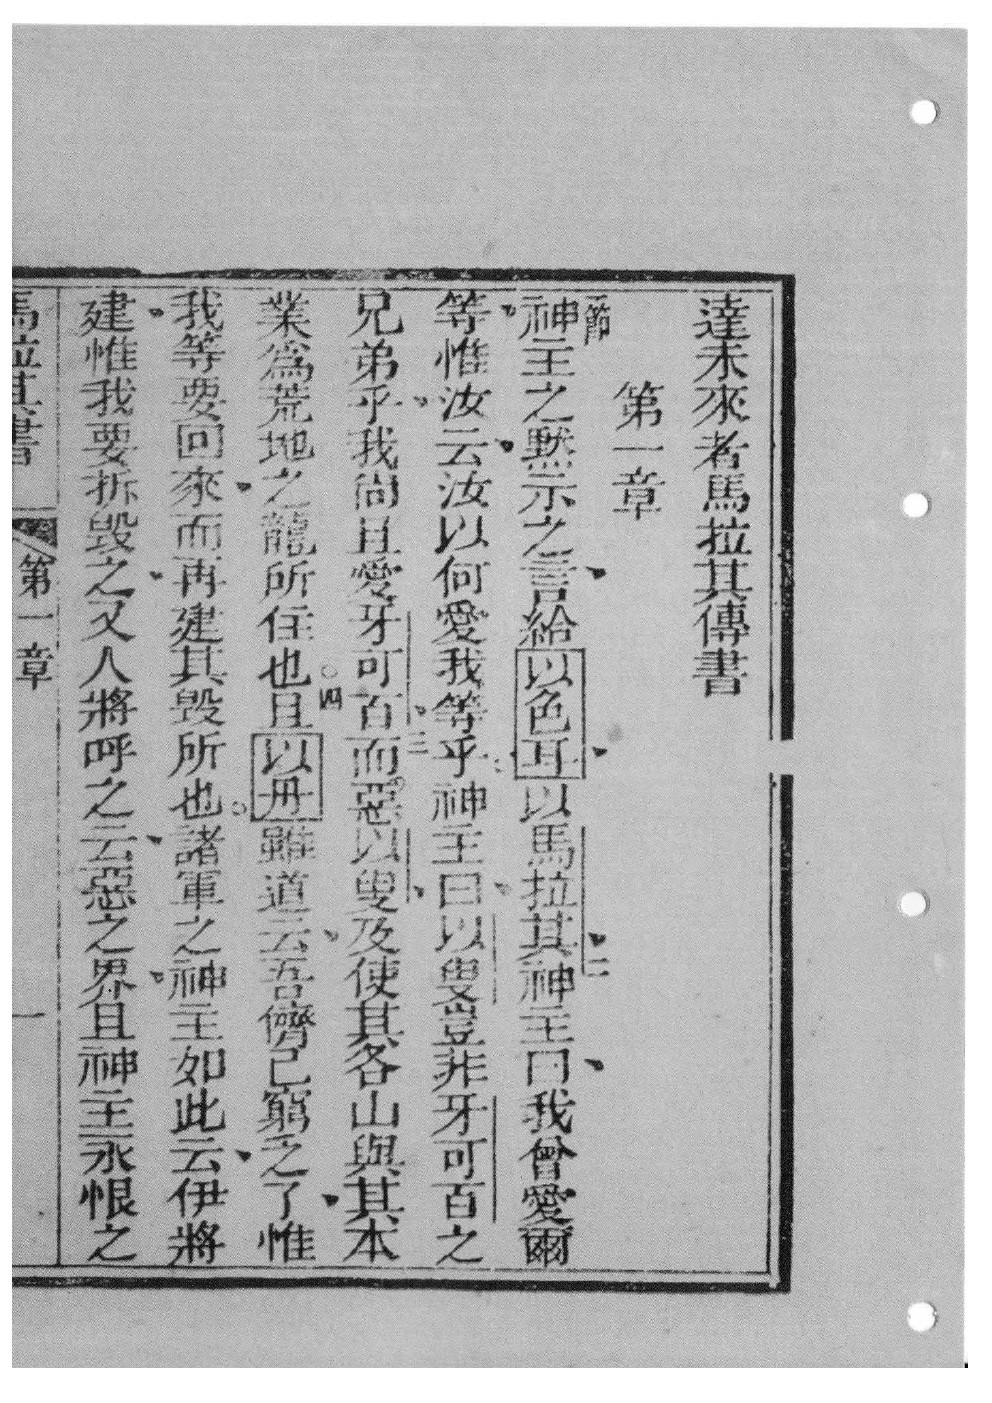 達未來者馬拉其傳書
第一章
一節神主之黙示之言給以色耳以馬拉其二神主曰我曾愛爾
等惟汝云汝以何愛我等乎神主曰以叟豈非牙可百之
兄弟乎我尚且愛牙可百三而惡以叟及使其各山與其本
業為荒地之龍所住也四且以丹雖道云吾儕已窮乏了惟
我等要回來而再建其毀所也諸軍之神主如此云伊將
建惟我要拆毀之又人將呼之云惡之界且神主永恨之
馬拉其書 第一章 一